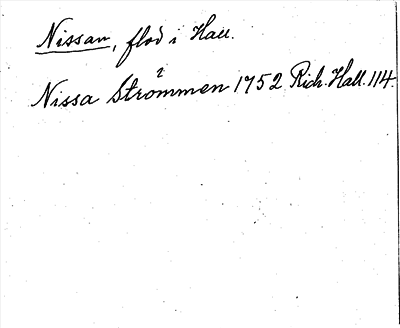 Nissan, flod i Hall.
Nissa Strømmen 1752 Rich. Hall. 114.